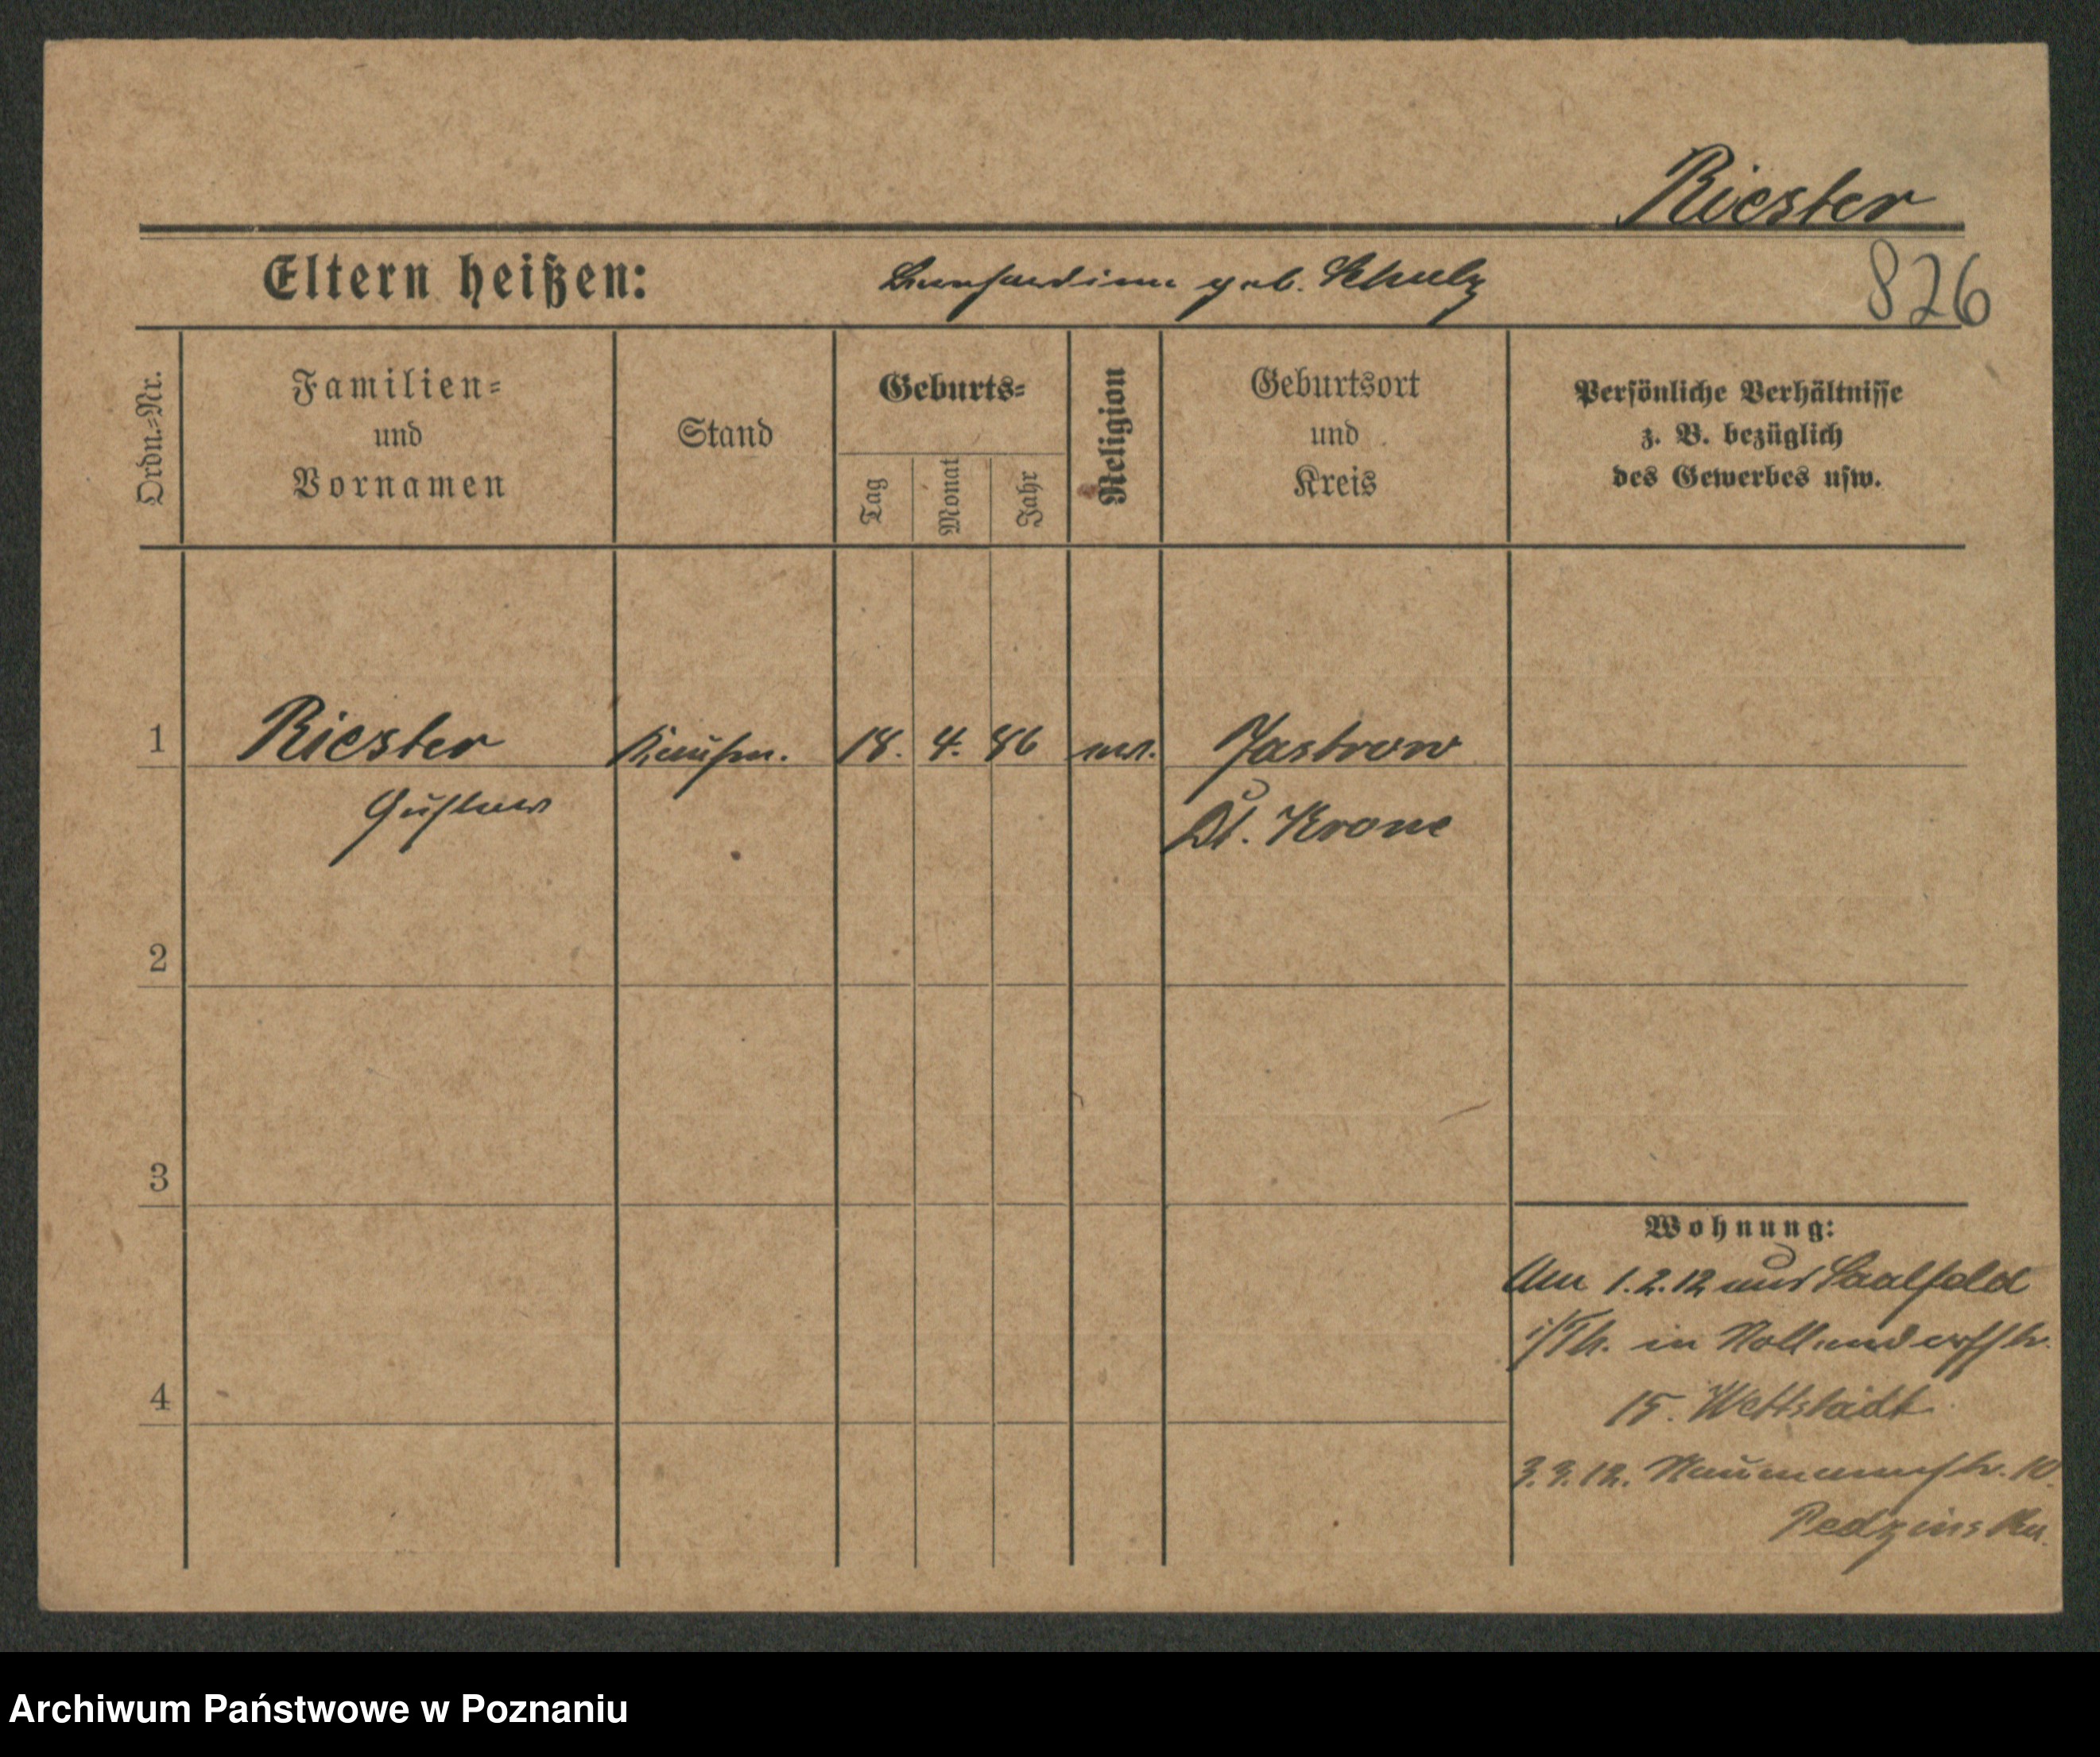 Riester
Eltern heißen: geb. Schulz
826
Ordn.-Nr.
Familien-
und
Vornamen
Stand
Geburts-
Tag
Monat
Jahr
Religion
Geburtsort
und
Kreis
Persönliche Verhältnisse
z. B. bezüglich
des Gewerbes usw.
1 Riester Kaufm. 18. 4. 86 Jastrow
Gustav Dt. Krone
2
3
Wohnung:
Am 1.2.12 aus Saalfeld
i/Th. in Nollendorfstr.
4
15. Wettstädt
3.3.12. Naumannstr. 10.
Archiwum Państwowe w Poznaniu